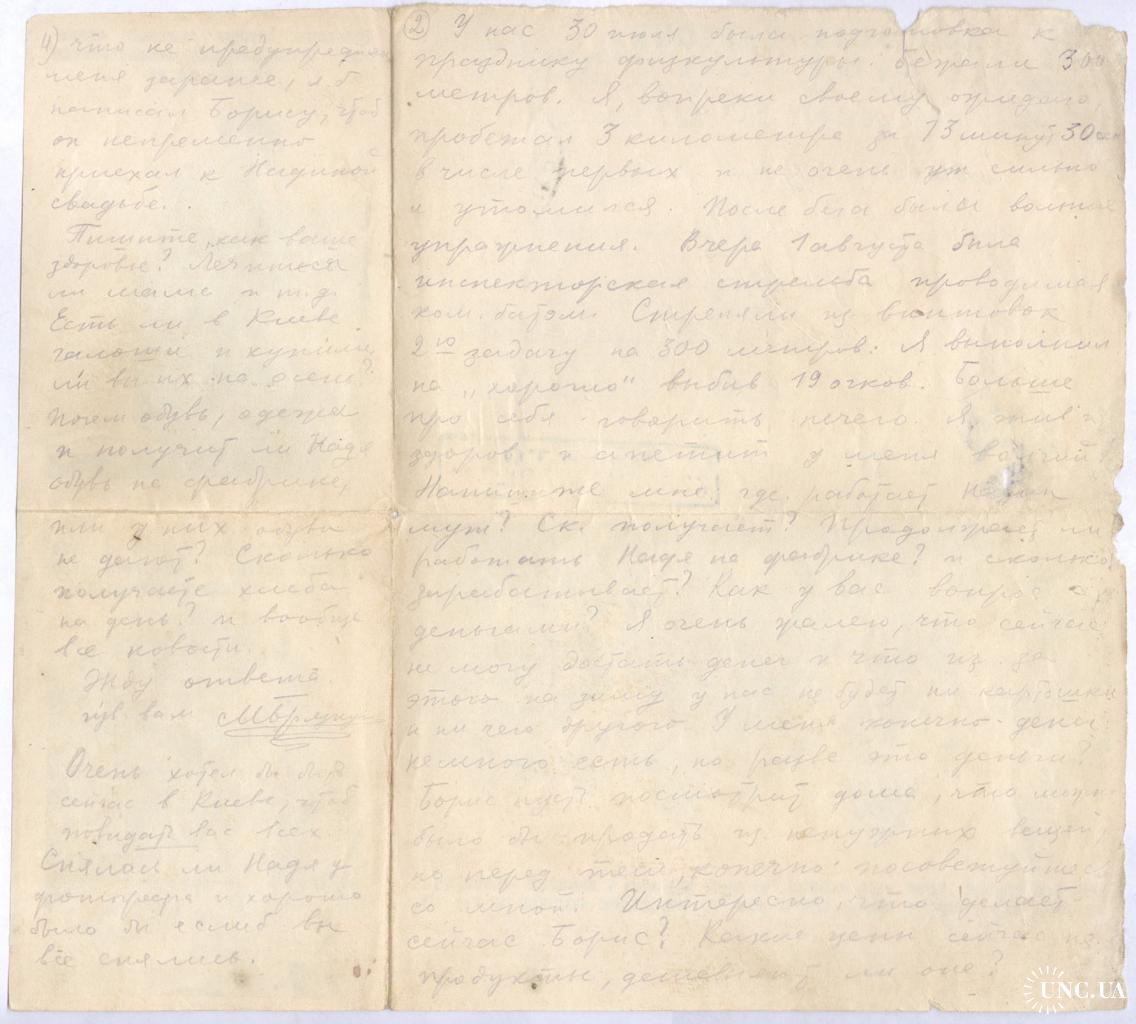 4) что не предупредили
меня заранее, я б
написал Борису, чтоб
он непременно
приехал к Надиной
свадьбе.
Пишите, как ваше
здоровье? Лечитесь
ли мама и т.д.
Есть ли в Киеве
галоши и купили
ли вы их на осень?
Почем обувь, одежа
и получит ли Надя
обувь на фабрике,
или у них обуви
не дают? Сколько
получаете хлеба
на день? и вообще
все новости.
Жду ответа.
вам
Очень хотел бы быть
сейчас в Киеве, чтоб
повидать вас всех.
Снялась ли Надя у
фотографа и хорошо
было бы еслиб вы
все снялись.
2 У нас 30 июля была подготовка к
празднику физкультуры. Бежали 3000
метров. Я, вопреки своему ожиданию,
пробежал 3 километра за 13 минут 30 сек
в числе первых и не очень уж сильно
и утомился. После бега были вольные
упражнения. Вчера 1 августа была
инспекторская стрельба проводимая
ком. батом. Стреляли из винтовок
2ю задачу на 300 метров. Я выполнил
на "хорошо" выбив 19 очков. Больше
про себя говорить нечего. Я жив и
здоров и апетит у меня волчий!
Напишите мне где работает Надин
муж? Ск. получает? Продолжает ли
работать Надя на фабрике? и сколько
зарабатывает? Как у вас вопрос с
деньгами? Я очень жалею, что сейчас
не могу достать денег и что из за
этого на зиму у нас не будет ни картошки
и ни чего другого. У меня конечно деньги
немного есть, но разве это деньги?
Борис пусть посмотрит дома, что можно
было бы продать из ненужних вещей,
но перед тем, конечно посоветуйтесь
со мной. Интересно, что делает
сейчас Борис? Какие цены сейчас на
продукты, дешевеют ли оне?
UNC.UA